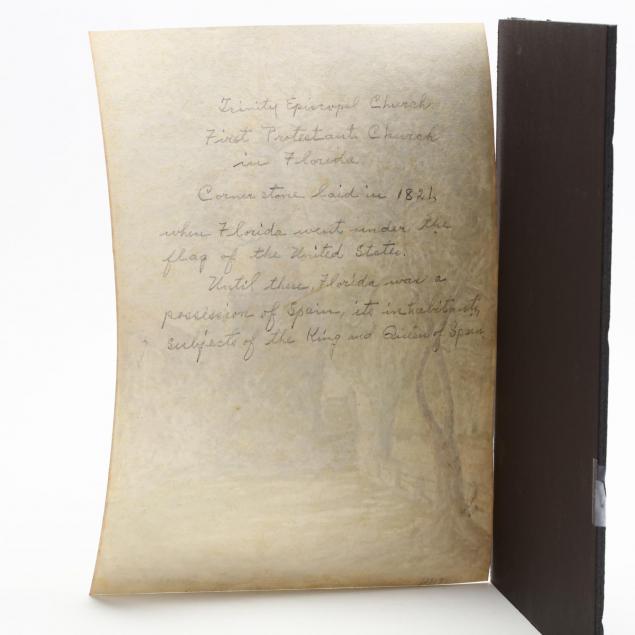 Trinity Episcopal Church
First Protestant Church
in Florida
Corner stone laid in 1821,
when Florida went under the
flag of the United States.
Until then, Florida was a
possession of Spain, its inhabitants,
subjects of the King and Queen of Spain